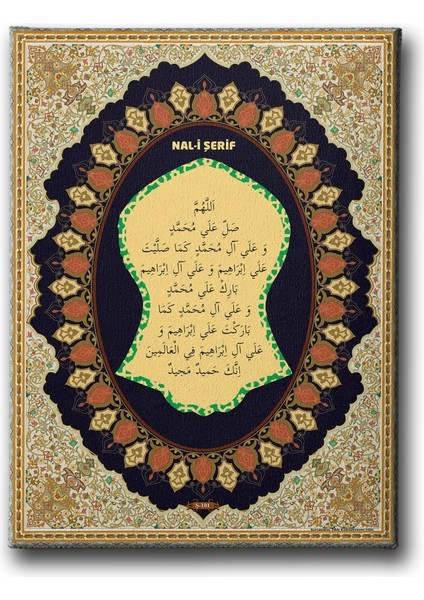 NAL-İ ŞERİF
اَللَّهُمَّ
صَلِّ عَلَي مُحَمَّدٍ
وَ عَلَي آلِ مُحَمَّدٍ كَمَا صَلَّيْتَ
عَلَي اِبْرَاهِيمَ وَ عَلَي آلِ اِبْرَاهِيمَ
بَارِكْ عَلَي مُحَمَّدٍ
وَ عَلَي آلِ مُحَمَّدٍ كَمَا
بَارَكْتَ عَلَي اِبْرَاهِيمَ وَ
عَلَي آلِ اِبْرَاهِيمَ فِي الْعَالَمِينَ
اِنَّكَ حَمِيدٌ مَجِيدٌ
S-101